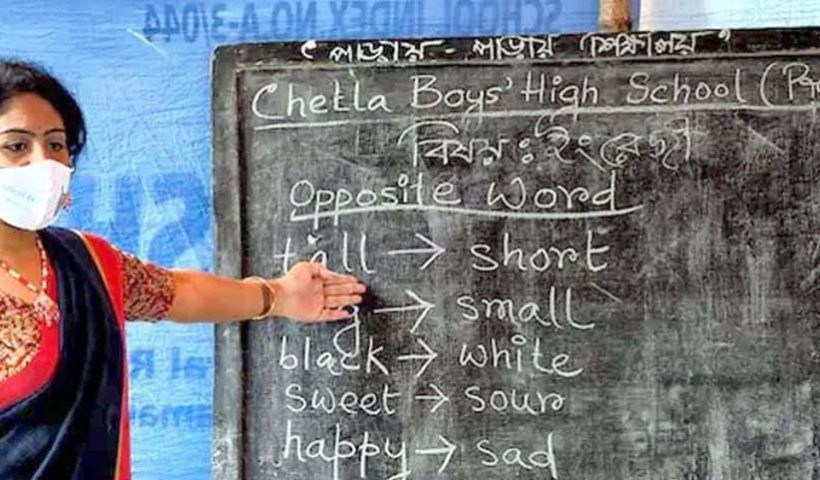 SCHOOL INDEX NO.A-3/044
‘পাড়ায় - পাড়ায় শিক্ষালয়’
Chetla Boys' High School
বিষয় : ইংরেজী
Opposite Word
tall → short
→ small
black → white
sweet → sour
happy → sad